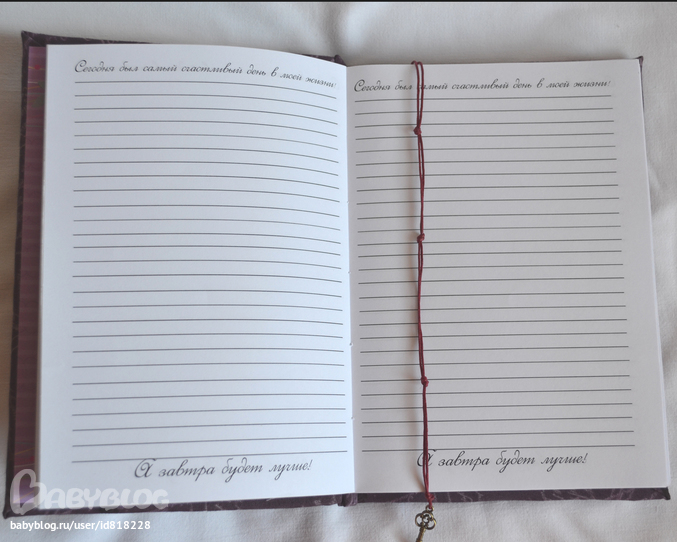 Сегодня был самый счастливый день в моей жизни!
А завтра будет лучше!
Сегодня был самый счастливый день в моей жизни!
А завтра будет лучше!
BABYBLOG
babyblog.ru/user/id818228